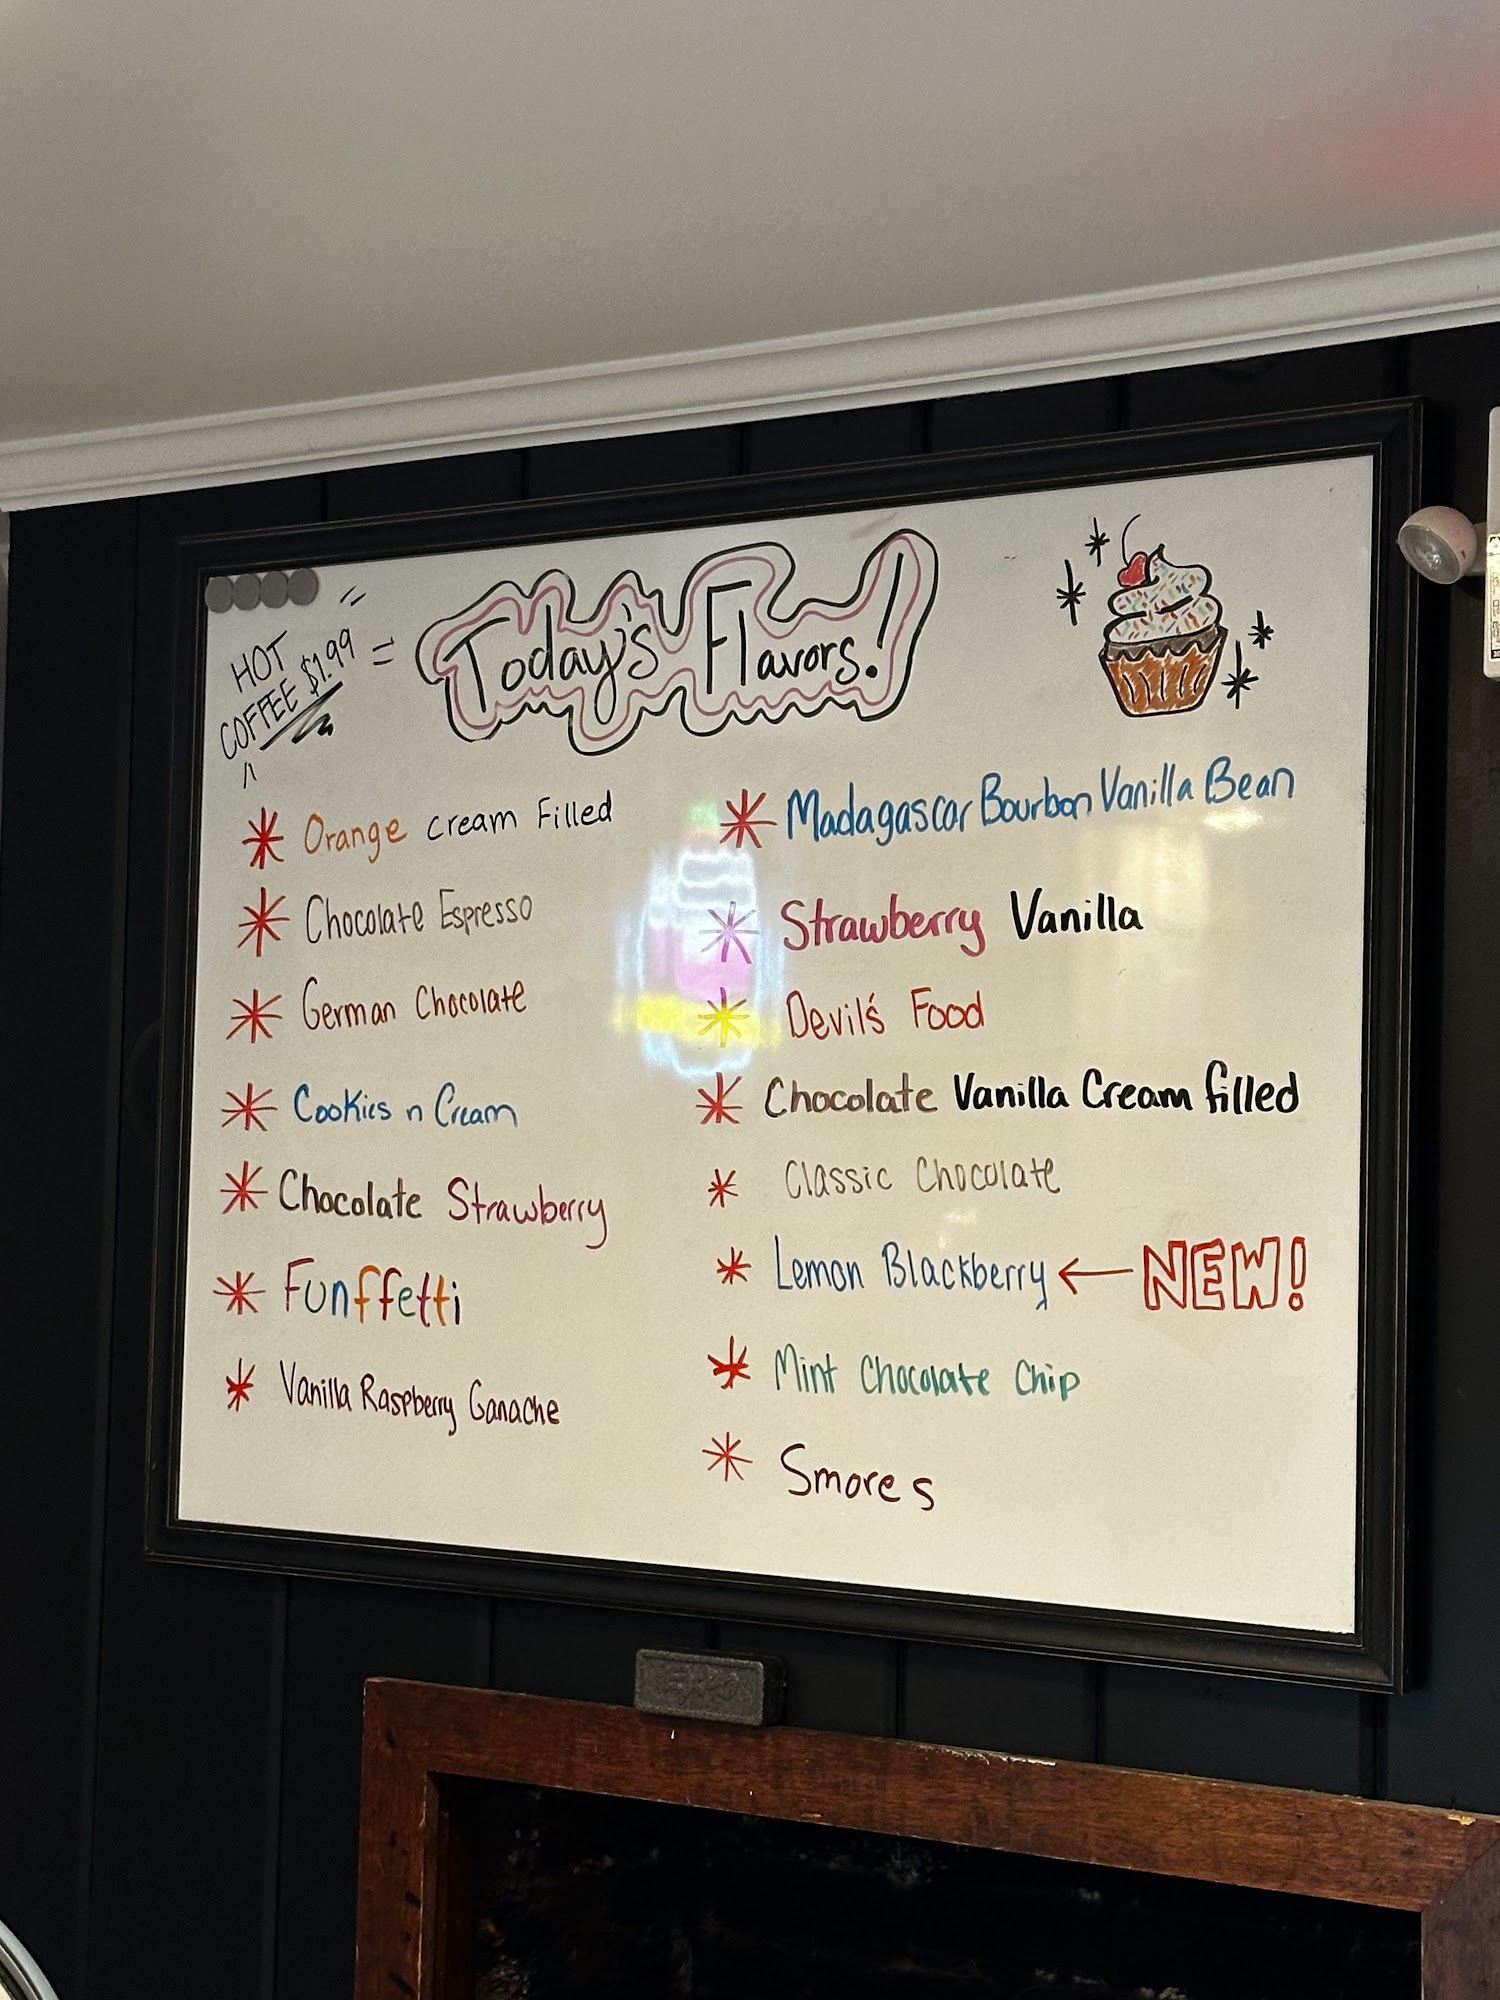 HOT
COFFEE $1.99
Today's Flavors!
Orange cream Filled
Chocolate Espresso
German Chocolate
Cookies n Cream
Chocolate Strawberry
Funffetti
Vanilla Raspberry Ganache
Madagascar Bourbon Vanilla Bean
Strawberry Vanilla
Devil's Food
Chocolate Vanilla Cream filled
Classic Chocolate
Lemon Blackberry ← NEW!
Mint Chocolate Chip
Smores